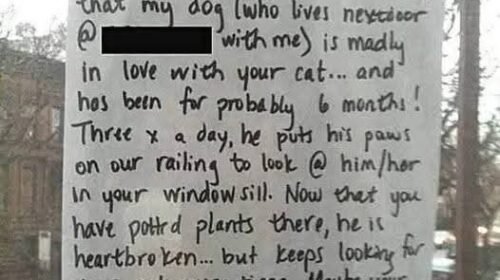 that my dog (who lives nextdoor
@ with me) is madly
in love with your cat... and
has been for probably 6 months!
Three x a day, he puts his paws
on our railing to look @ him/her
in your window sill. Now that you
have pottrd plants there, he is
heartbroken... but keeps looking for